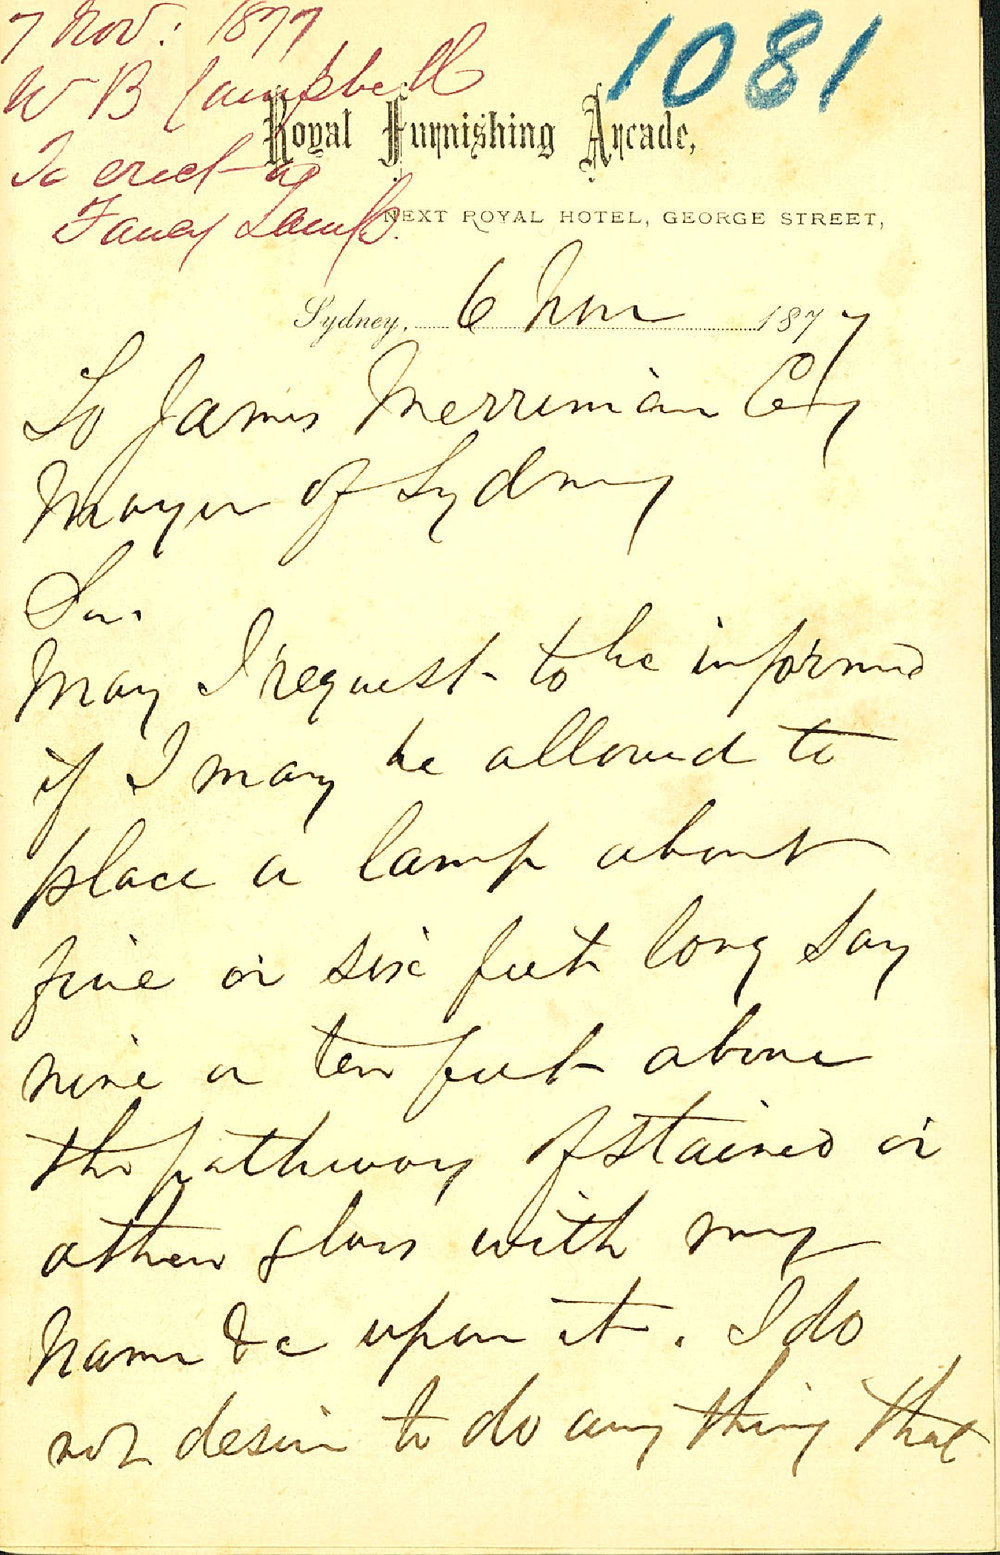 7 Nov: 1877
1081
W B Campbell
To erect a
Fancy Lamp.
Royal Furnishing Arcade,
NEXT ROYAL HOTEL, GEORGE STREET,
Sydney, 6 Nov 1877
To James Merriman Esq
Mayor of Sydney
Sir
May I request to be informed
if I may be allowed to
place a lamp about
five or six feet long say
nine or ten feet above
the pathway of stained or
other glass with my
name &c upon it. I do
not desire to do any thing that